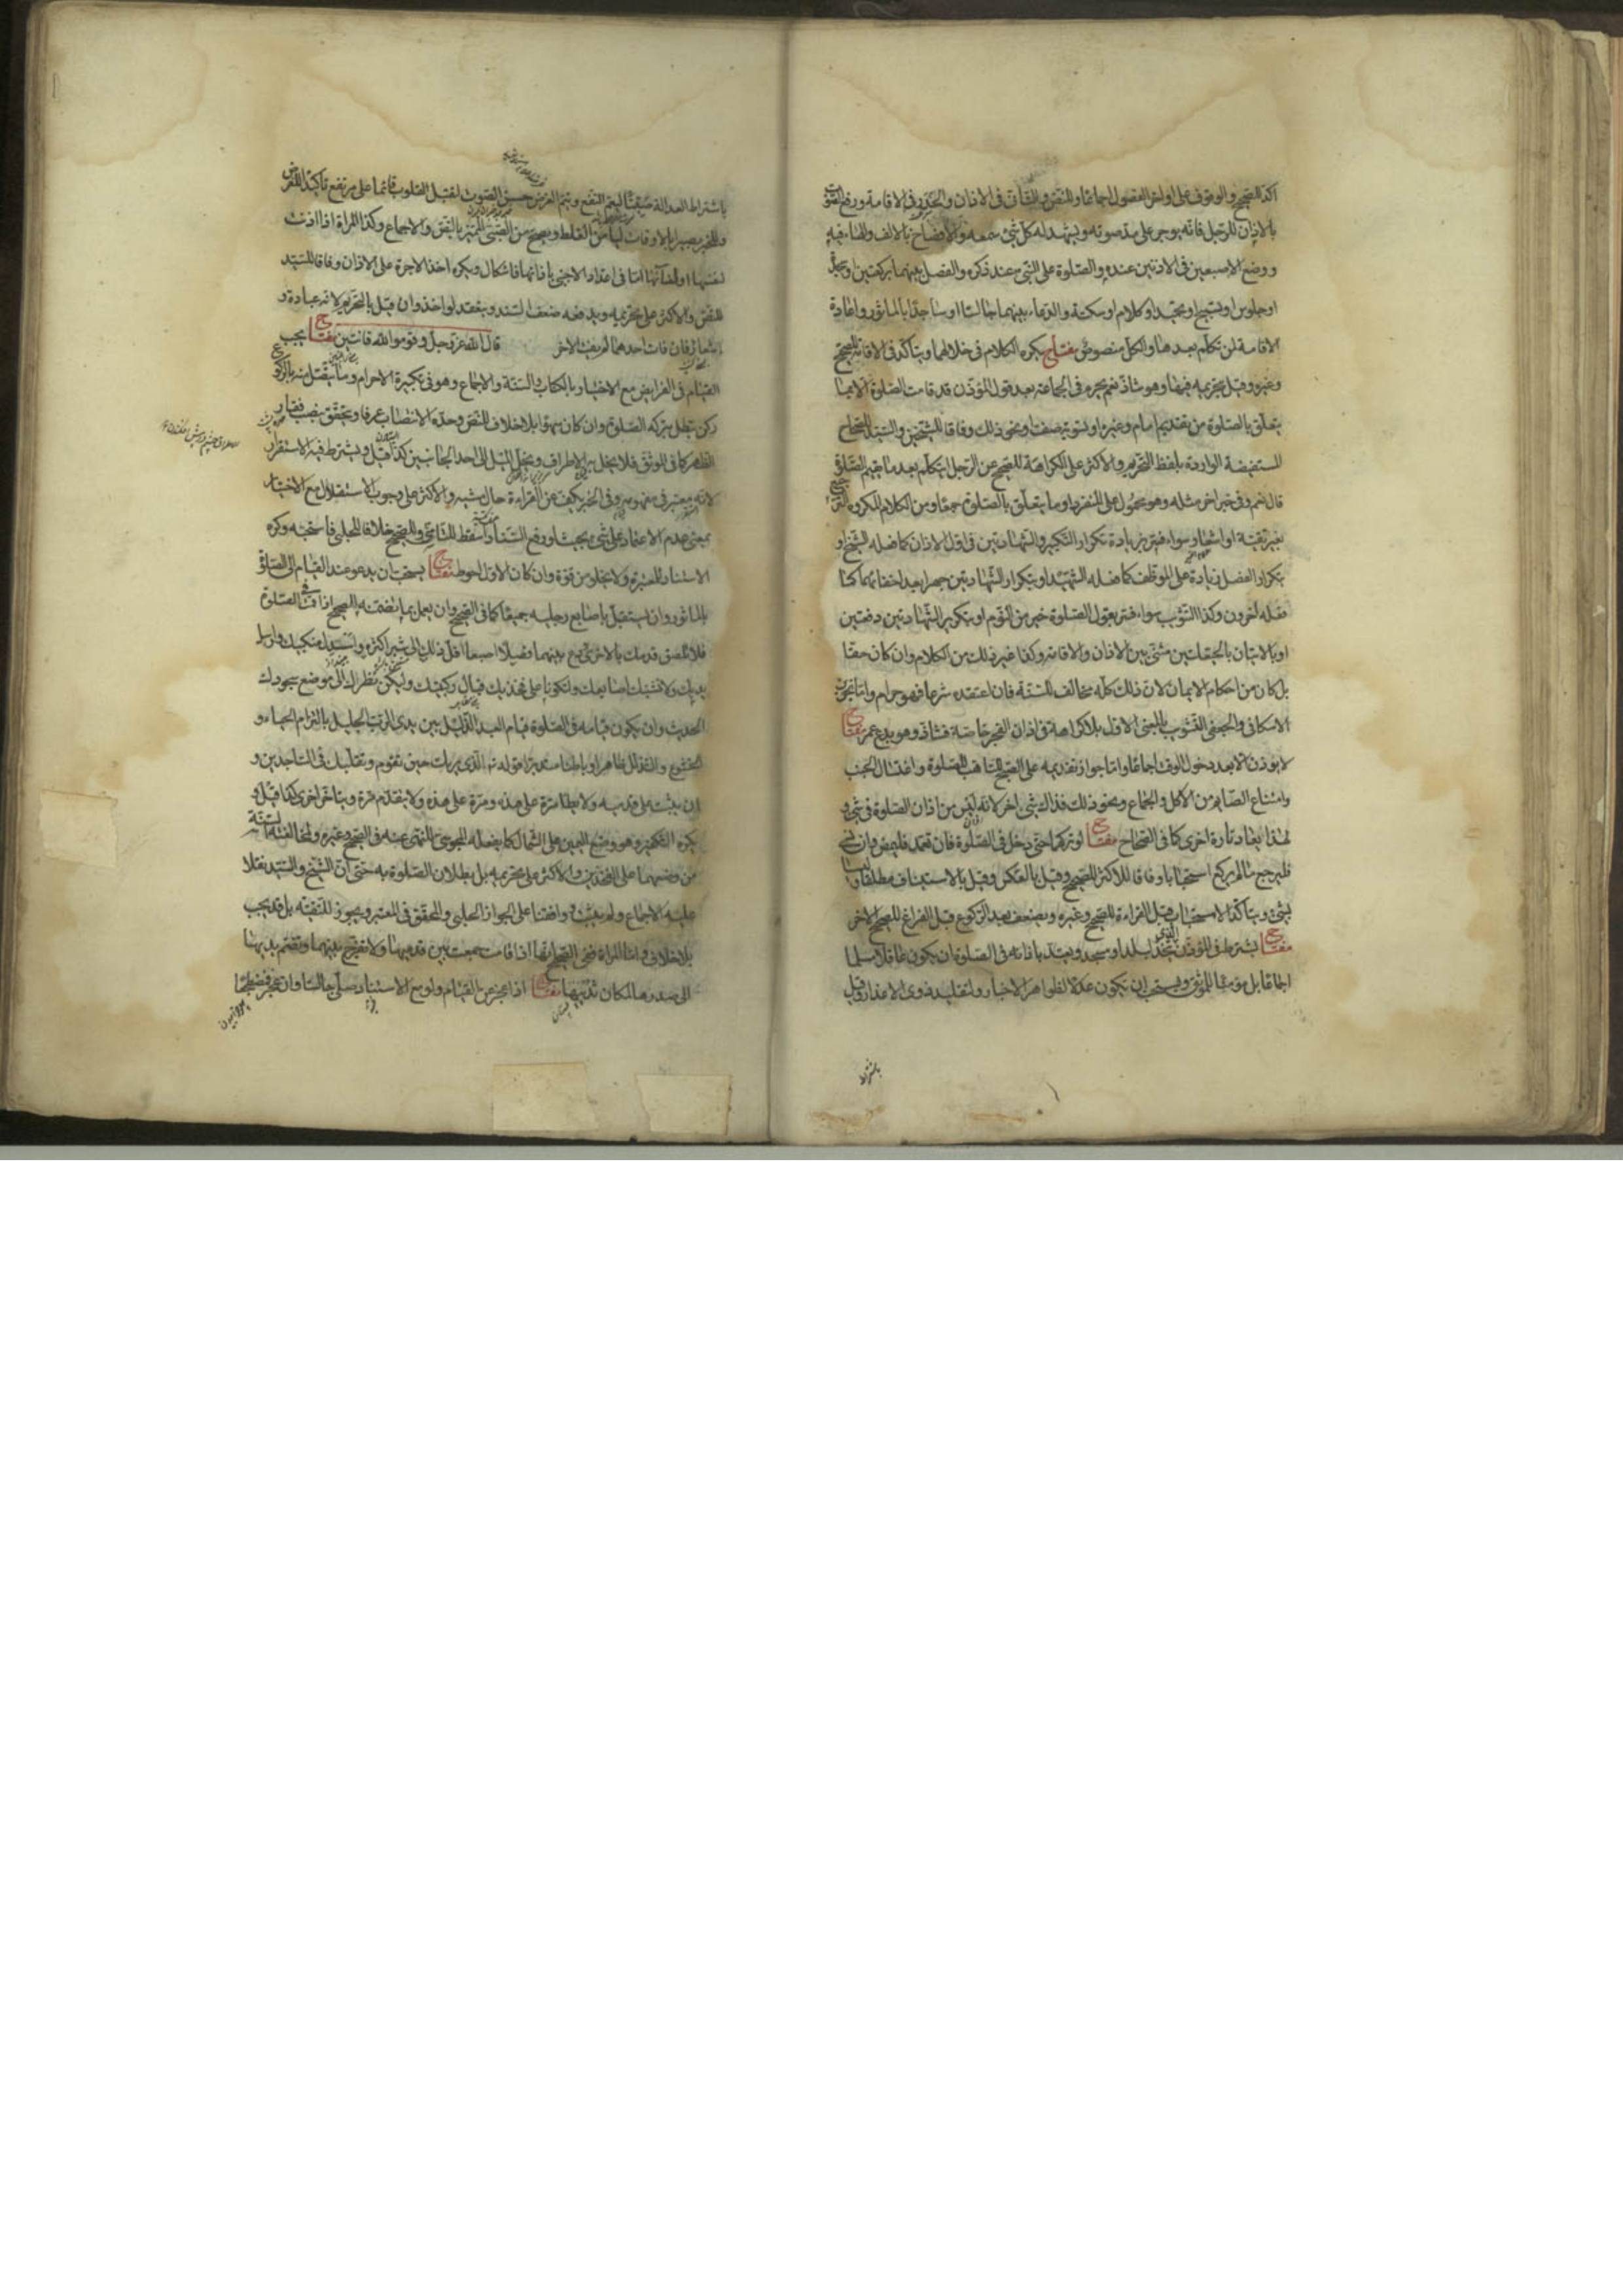 اكد للصحيح والوقوف على اواخر الفصول اجماعا وللنص والتأنى فى الاذان والحدر فى الاقامة ورفع الصوت
بالاذان للرجل فانه يوجر على مد صوته ويشهد له كل شئ سمعه والافصاح بالالف والهاء فيه
ووضع الاصبعين فى الاذنين عنده والصلوة على النبى عند ذكره والفصل بينهما بركعتين او سجدة
او جلوس او تسبيح او تحميد او كلام او سكتة والدعاء بينهما جالسا او ساجدا بالماثور واعادة
الاقامة لمن تكلم بعدها والكل منصوص مفتاح يكره الكلام فى خلالهما ويتاكد فى الاقامة للصحيح
وغيره وقيل بتحريمه فيها وهو شاذ نعم يحرم فى الجماعة بعد قول المؤذن قد قامت الصلوة الا بما
يتعلق بالصلوة من تقديم امام وغيره او تسوية صف او نحو ذلك وفاقا للشيخين والسيد للصحاح
المستفيضة الواردة بلفظ التحريم والاكثر على الكراهة للصحيح عن الرجل يتكلم بعد ما يقيم الصلوة
قال نعم وفى خبر اخر مثله وهو محمول على المنفرد او ما يتعلق بالصلوة جمعا ومن الكلام المكروه الترجيع
بغير تقية او اشعار سواء فسر بزيادة تكرار التكبير والشهادتين فى اول الاذان كما فعله الشيخ او
بتكرار الفصل زيادة على الموظف كما فعله الشهيد او بتكرار الشهادتين جهرا بعد اخفاتهما كما
فعله اخرون وكذا التثويب سواء فسر بقول الصلوة خير من النوم او بتكرير الشهادتين دفعتين
او بالاتيان بالحيعلتين مثنى بين الاذان والاقامة وكذا غير ذلك من الكلام وان كان حقا
بل كان من احكام الايمان لان ذلك كله مخالف للسنة فان اعتقده شرعا فهو حرام واما تجويز
الاسكافى والجعفى التثويب بالمعنى الاول بلا كراهة فى اذان الفجر خاصة فشاذ وهو بدع عمر مفتاح
لا يؤذن الا بعد دخول الوقت اجماعا واما جواز تقديمه على الصبح للتاهب للصلوة واغتسال الجنب
وامتناع الصائم من الاكل والجماع ونحو ذلك فذاك شئ اخر لانه ليس من اذان الصلوة فى شئ و
لهذا يعاد تارة اخرى كما فى الصحاح مفتاح لو تركهما حتى دخل فى الصلوة فان تعمد فليمض وان نسى
فليرجع ما لم يركع استحبابا وفاقا للاكثر للصحيح وقيل بالعكس وقيل بالاستيناف مطلقا وليسا
بشئ ويتاكد الاستحباب قبل القراءة للصحيح وغيره ويضعف بعد الركوع قبل الفراغ للصحيح الاخر
مفتاح يشترط فى المؤذن الذى يتخذ لبلد او مسجد ويعتد باذانه فى الصلوة ان يكون عاقلا مسلما
اجماعا بل مؤمنا للموثق ويستحب ان يكون عدلا لظواهر الاخبار ولتقليد ذوى الاعذار وقيل
باشتراط
باشتراط العدالة صيتا ليعم النفع ويتم الغرض حسن الصوت لتقبل القلوب قائما على مرتفع تاكيدا للغرض
وللخبر بصيرا بالاوقات ليأمن الغلط ويصح من الصبى المميز بالنص والاجماع وكذا المراة اذا اذنت
لنفسها او لنسائها اما فى اعتداد الاجنبى باذانها فاشكال ويكره اخذ الاجرة على الاذان وفاقا للسيد
للنص والاكثر على تحريمه ويدفعه ضعف السند وينعقد لو اخذ وان قيل بالتحريم لانه عبادة و
شعار فان فات احدهما لم يفت الاخر قال الله عز وجل وقوموا لله قانتين مفتاح يجب
القيام فى الفرايض مع الاختيار بالكتاب والسنة والاجماع وهو فى تكبيرة الاحرام وما يتصل منه بالركوع
ركن تبطل بتركه الصلوة وان كان سهوا بلا خلاف للنص وحده الانتصاب عرفا ويتحقق بنصب فقار
الظهر كما فى الموثق فلا يخل به الاطراف ويخل الميل الى احد الجانبين كذا قيل ويشترط فيه الاستقرار
لانه معتبر فى مفهومه وفى الخبر يكف عن القراءة حال مشيه والاكثر على وجوب الاستقلال مع الاختيار
بمعنى عدم الاعتماد على شئ بحيث لو رفع السناد لسقط للتاسى وللصحيح خلافا للحلبى فاستحبه وكره
الاستناد للمعتبرة ولا يخلو من قوة وان كان الاول احوط مفتاح يستحب ان يدعو عند القيام الى الصلوة
بالماثور وان يستقبل باصابع رجليه جميعا كما فى الصحيح وان يعمل بما تضمنه الصحيح اذا قمت فى الصلوة
فلا تلصق قدمك بالاخرى دع بينهما فصلا اصبعا اقل ذلك الى شبر اكثره واسدل منكبيك وارسل
يديك ولا تشبك اصابعك ولتكونا على فخذيك قبال ركبتيك وليكن نظرك الى موضع سجودك
الحديث وان يكون قيامه فى الصلوة قيام العبد الذليل بين يدى الرب الجليل بالتزام الحياء و
الخشوع والتذلل ظاهرا وباطنا متدبرا قوله تع الذى يريك حين تقوم وتقلبك فى الساجدين و
ان يثبت على قدميه ولا يطأ مرة على هذه ومرة على هذه ولا يتقدم مرة ويتاخر اخرى كذا قيل و
يكره التكفير وهو وضع اليمين على الشمال كما يفعله المجوس للنهى عنه فى الصحيح وغيره ولمخالفته السنة
من وضعهما على الفخذين والاكثر على تحريمه بل بطلان الصلوة به حتى ان الشيخ والسيد نقلا
عليه الاجماع ولم يثبت ووافقنا على الجواز الحلبى والمحقق فى المعتبر ويجوز للتقية بل قد يجب
بلا خلاف واما المراة ففى الصحيح انها اذا قامت جمعت بين قدميها ولا تفرج بينهما وتضم يديها
الى صدرها لمكان ثدييها مفتاح اذا عجز عن القيام ولو مع الاستناد صلى جالسا وان عجز فمضطجعا